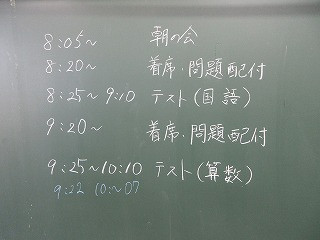 8:05~ 朝の会
8:20~ 着席.問題配付
8:25~9:10 テスト(国語)
9:20~ 着席.問題配付
9:25~10:10 テスト(算数)
9:22 10:~07